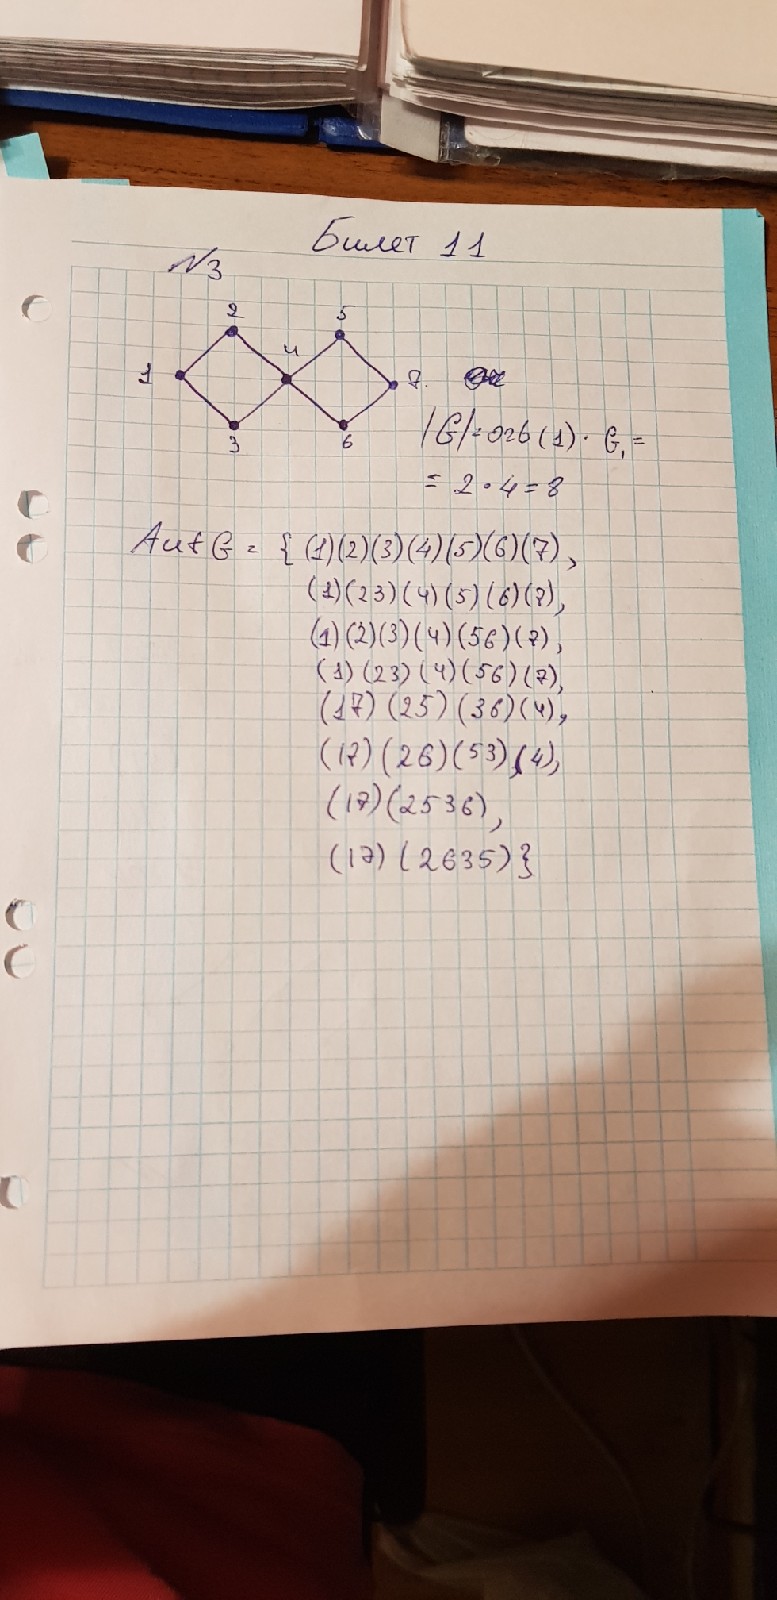 Билет 11
№3
2 5
1 4 7.
3 6
|G| = orb(1) · G₁ =
= 2 · 4 = 8
Aut G = { (1)(2)(3)(4)(5)(6)(7),
(1)(23)(4)(5)(6)(7),
(1)(2)(3)(4)(56)(7),
(1)(23)(4)(56)(7),
(17)(25)(36)(4),
(17)(26)(53)(4),
(17)(2536),
(17)(2635)}